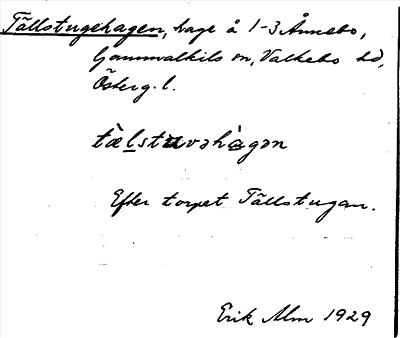 Tällstugehagen, hage å 1-3 Ånnebo,
Gammalkils sn, Valkebo hd,
Österg. l.
tæ̀lstuvəhàgən
Efter torpet Tällstugan.
Erik Alm 1929